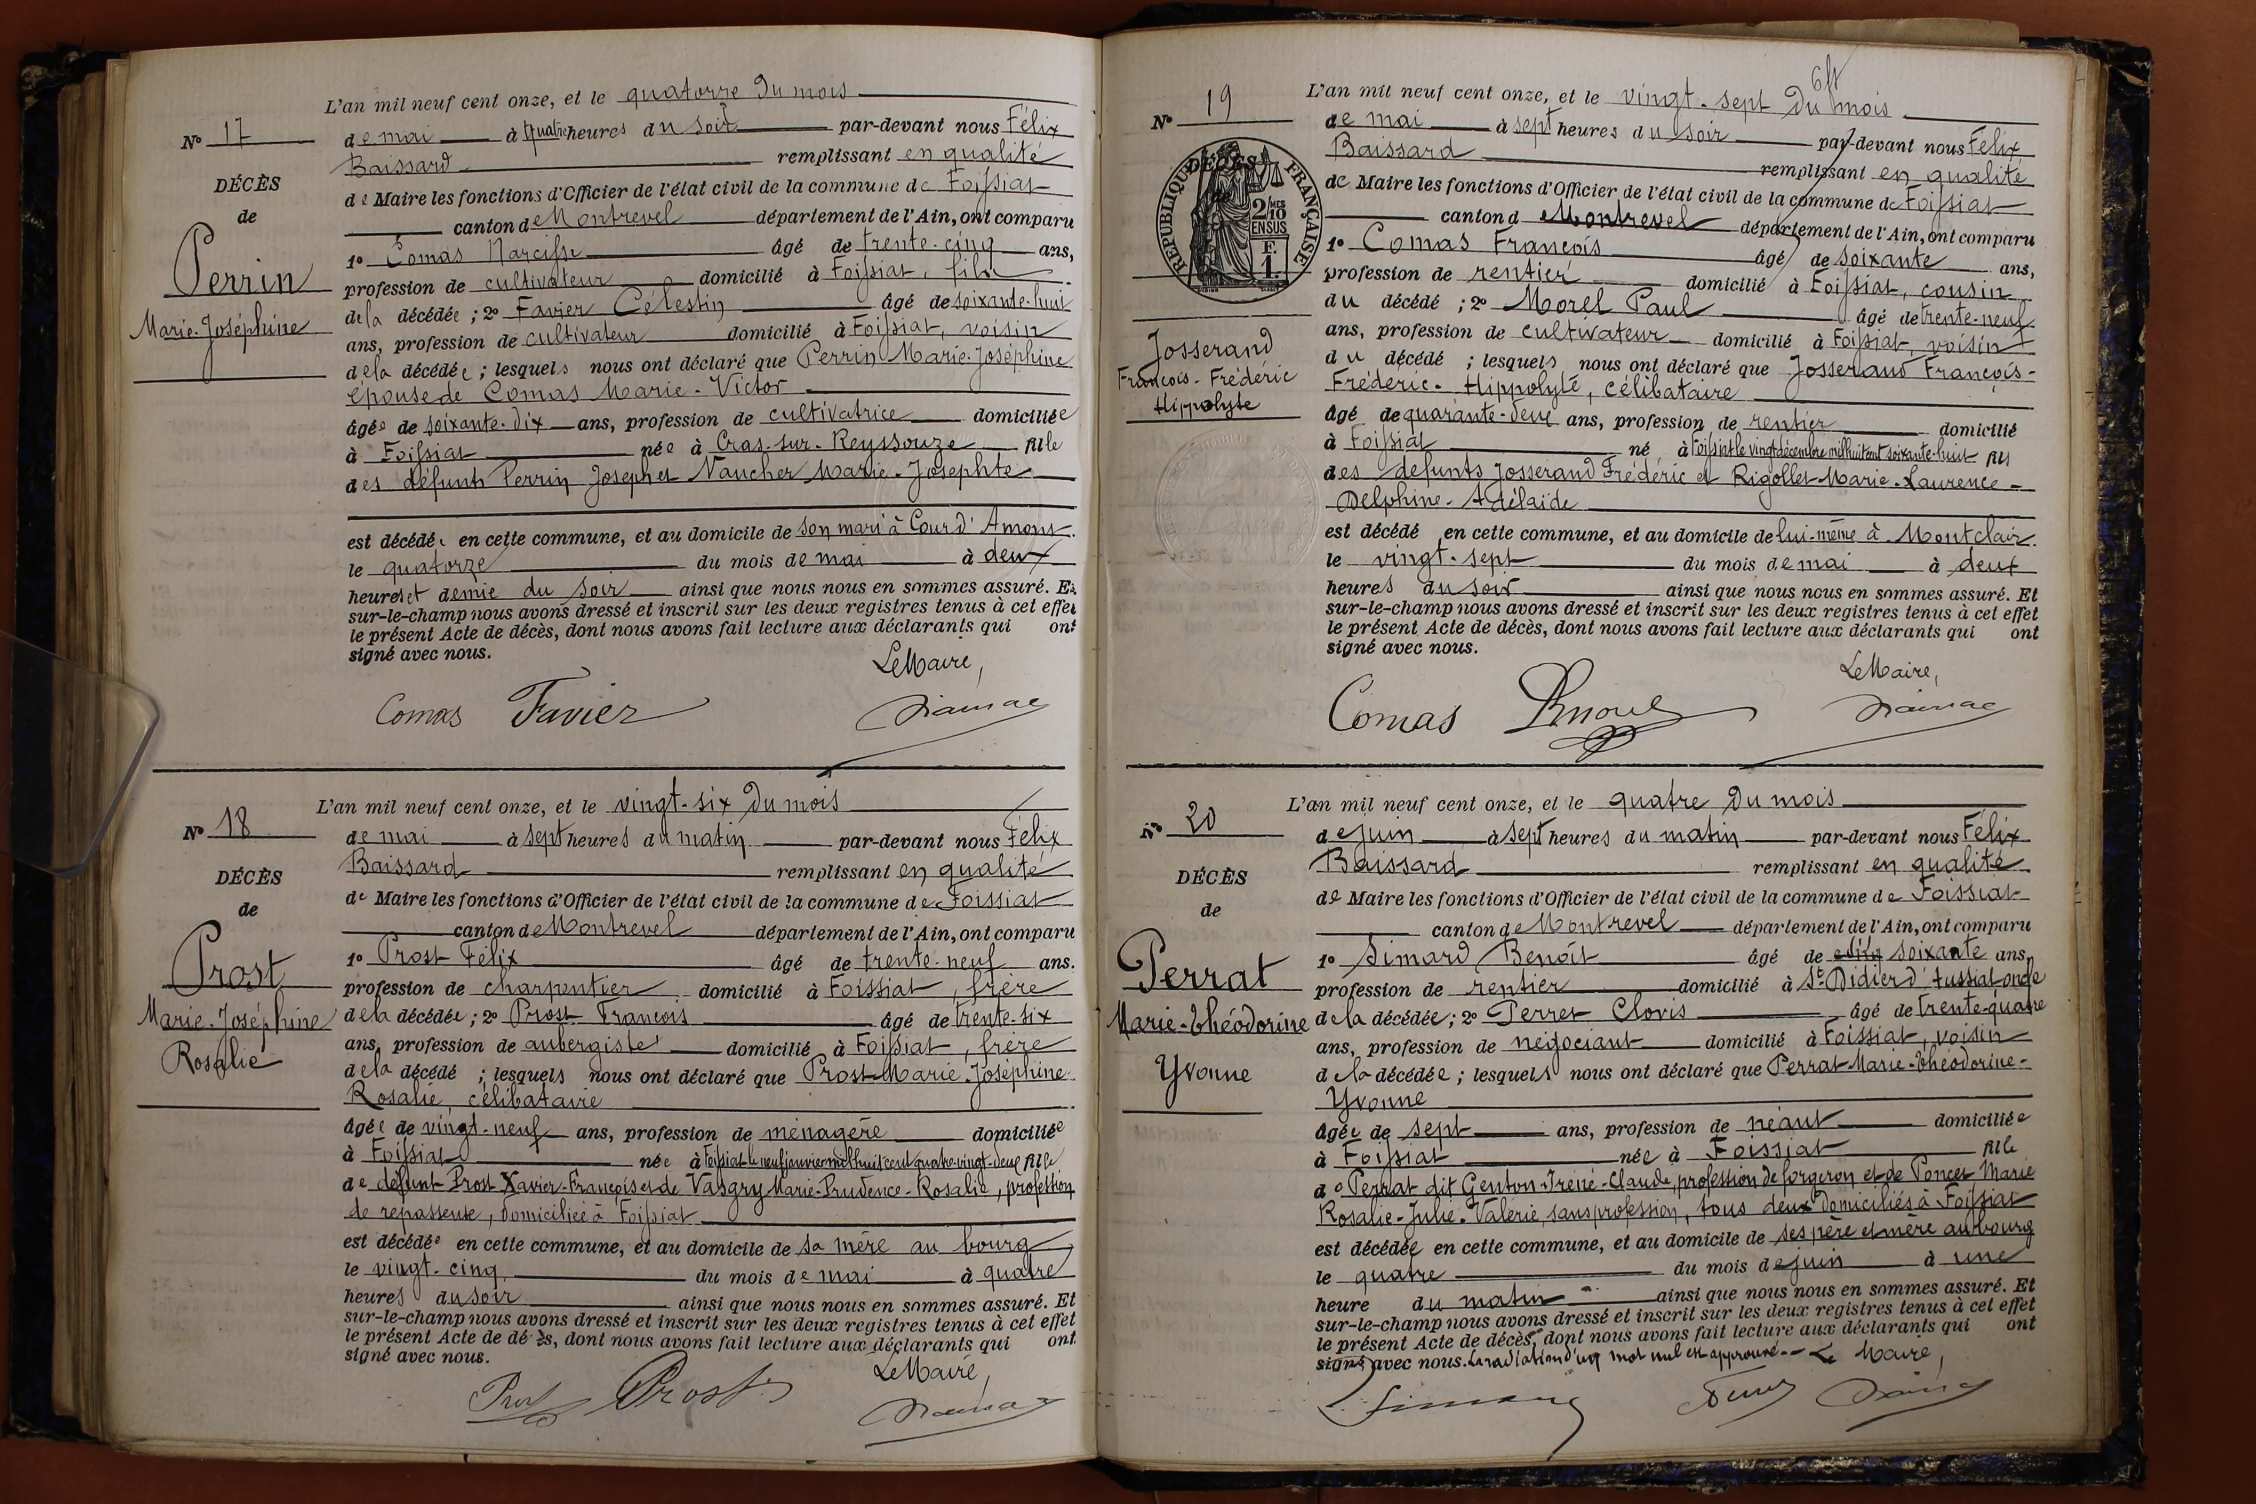 L'an mil neuf cent onze, et le quatorze du mois
N° 17
de mai à quatre heures du soir par-devant nous Félix
Baissard remplissant en qualité
DÉCÈS
de Maire les fonctions d'Officier de l'état civil de la commune de Foissiat
de
canton de Montrevel département de l'Ain, ont comparu
Perrin
1° Comas Narcisse âgé de trente-cinq ans,
profession de cultivateur domicilié à Foissiat, fils
Marie-Joséphine
de la décédée ; 2° Favier Célestin âgé de soixante-huit
ans, profession de cultivateur domicilié à Foissiat, voisin
de la décédée ; lesquels nous ont déclaré que Perrin Marie-Joséphine
épouse de Comas Marie-Victor
âgée de soixante-dix ans, profession de cultivatrice domiciliée
à Foissiat née à Cras-sur-Reyssouze fille
des défunts Perrin Joseph et Vaucher Marie-Josephte
est décédée en cette commune, et au domicile de son mari à Cour d'Amont
le quatorze du mois de mai à deux
heures et demie du soir ainsi que nous nous en sommes assuré. Et
sur-le-champ nous avons dressé et inscrit sur les deux registres tenus à cet effet
le présent Acte de décès, dont nous avons fait lecture aux déclarants qui ont
signé avec nous.
Le Maire,
Comas Favier
L'an mil neuf cent onze, et le vingt-six du mois
N° 18
de mai à sept heures du matin par-devant nous Félix
Baissard remplissant en qualité
DÉCÈS
de Maire les fonctions d'Officier de l'état civil de la commune de Foissiat
de
canton de Montrevel département de l'Ain, ont comparu
Prost
1° Prost Félix âgé de trente-neuf ans.
profession de charpentier domicilié à Foissiat, frère
Marie-Joséphine
de la décédée ; 2° Prost François âgé de trente-six
Rosalie
ans, profession de aubergiste domicilié à Foissiat, frère
de la décédé ; lesquels nous ont déclaré que Prost Marie-Joséphine-
Rosalie, célibataire
âgée de vingt-neuf ans, profession de ménagère domiciliée
à Foissiat née à Foissiat le neuf janvier mil huit cent quatre-vingt-deux fille
de défunt Prost Xavier-François et de Vasgry Marie-Prudence-Rosalie, profession
de repasseuse, domiciliée à Foissiat
est décédée en cette commune, et au domicile de sa mère au bourg
le vingt-cinq du mois de mai à quatre
heures du soir ainsi que nous nous en sommes assuré. Et
sur-le-champ nous avons dressé et inscrit sur les deux registres tenus à cet effet
le présent Acte de décès, dont nous avons fait lecture aux déclarants qui ont
signé avec nous.
Le Maire,
Prost Prost
L'an mil neuf cent onze, et le vingt-sept du mois
N° 19
de mai à sept heures du soir par-devant nous Félix
Baissard remplissant en qualité
DÉCÈS
RÉPUBLIQUE FRANÇAISE
2/10 MES
EN SUS
F.
1.
de Maire les fonctions d'Officier de l'état civil de la commune de Foissiat
canton de Montrevel département de l'Ain, ont comparu
1° Comas François âgé de soixante ans,
profession de rentier domicilié à Foissiat, cousin
du décédé ; 2° Morel Paul âgé de trente-neuf
Josserand
François-Frédéric
Hippolyte
ans, profession de cultivateur domicilié à Foissiat, voisin
du décédé ; lesquels nous ont déclaré que Josserand François-
Frédéric-Hippolyte, célibataire
âgé de quarante-deux ans, profession de rentier domicilié
à Foissiat né à Foissiat le vingt décembre mil huit cent soixante-huit fils
des défunts Josserand Frédéric et Rigollet Marie-Laurence-
Delphine-Adélaïde
est décédé en cette commune, et au domicile de lui-même à Montclair
le vingt-sept du mois de mai à deux
heures du soir ainsi que nous nous en sommes assuré. Et
sur-le-champ nous avons dressé et inscrit sur les deux registres tenus à cet effet
le présent Acte de décès, dont nous avons fait lecture aux déclarants qui ont
signé avec nous.
Le Maire,
Comas
L'an mil neuf cent onze, et le quatre du mois
N° 20
de juin à sept heures du matin par-devant nous Félix
Baissard remplissant en qualité
DÉCÈS
de Maire les fonctions d'Officier de l'état civil de la commune de Foissiat
de
canton de Montrevel département de l'Ain, ont comparu
Perrat
1° Simard Benoît âgé de soixante ans,
profession de rentier domicilié à St-Didier d'Aussiat oncle
Marie-Théodorine
de la décédée ; 2° Perret Clovis âgé de trente-quatre
Yvonne
ans, profession de négociant domicilié à Foissiat, voisin
de la décédée ; lesquels nous ont déclaré que Perrat Marie-Théodorine-
Yvonne
âgée de sept ans, profession de néant domiciliée
à Foissiat née à Foissiat fille
de Perrat dit Genton Irené-Claude, profession de forgeron et de Poncet Marie
Rosalie-Julie-Valérie, sans profession, tous deux domiciliés à Foissiat
est décédée en cette commune, et au domicile de ses père et mère au bourg
le quatre du mois de juin à une
heure du matin ainsi que nous nous en sommes assuré. Et
sur-le-champ nous avons dressé et inscrit sur les deux registres tenus à cet effet
le présent Acte de décès, dont nous avons fait lecture aux déclarants qui ont
signé avec nous. La radiation d'un mot nul est approuvé. Le Maire,
Simard